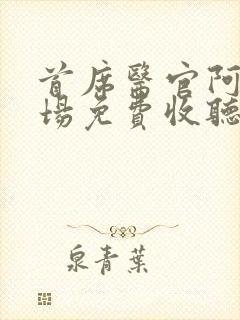 首席醫官阿
場免費收聽
泉青葉